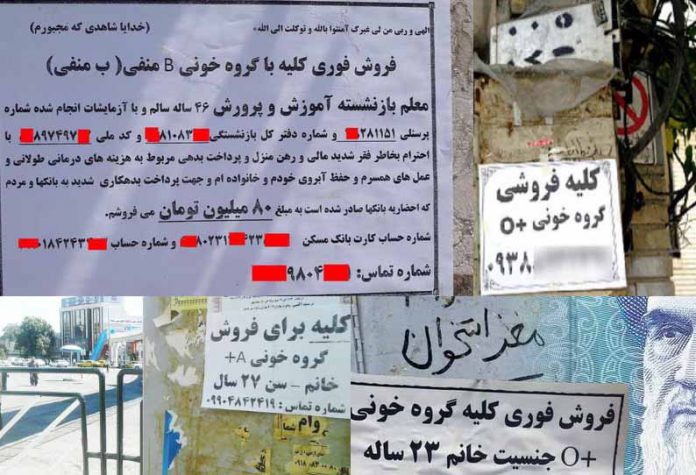 الهی و ربی من لی غیرک آمنتوا بالله و توکلت الی الله
(خدایا شاهدی که مجبورم)
فروش فوری کلیه با گروه خونی B منفی( ب منفی)
معلم بازنشسته آموزش و پرورش ۴۶ ساله سالم و با آزمایشات انجام شده شماره
پرسنلی ۲۸۱۱۵۱ و شماره دفتر کل بازنشستگی ۸۱۰۸۳ و کد ملی ۸۹۷۴۹۷۲ با
احترام بخاطر فقر شدید مالی و رهن منزل و پرداخت بدهی مربوط به هزینه های درمانی طولانی و
عمل های همسرم و حفظ آبروی خودم و خانواده ام و جهت پرداخت بدهکاری شدید به بانکها و مردم
که احضاریه بانکها صادر شده است به مبلغ ۸۰ میلیون تومان می فروشم.
شماره حساب کارت بانک مسکن ۸۰۲۳۱ ۴۲۳ و شماره حساب ۰۱۸۴۲۴۳
شماره تماس: ۹۸۰۴
کلیه فروشی
گروه خونی +O
۰۹۳۸
کلیه برای فروش
گروه خونی +A
خانم – سن ۲۷ سال
شماره تماس: ۰۹۹۰۴۸۴۲۴۱۹
وام
مغز استخوان
فروش فوری کلیه گروه خونی
+O جنسیت خانم ۲۳ ساله